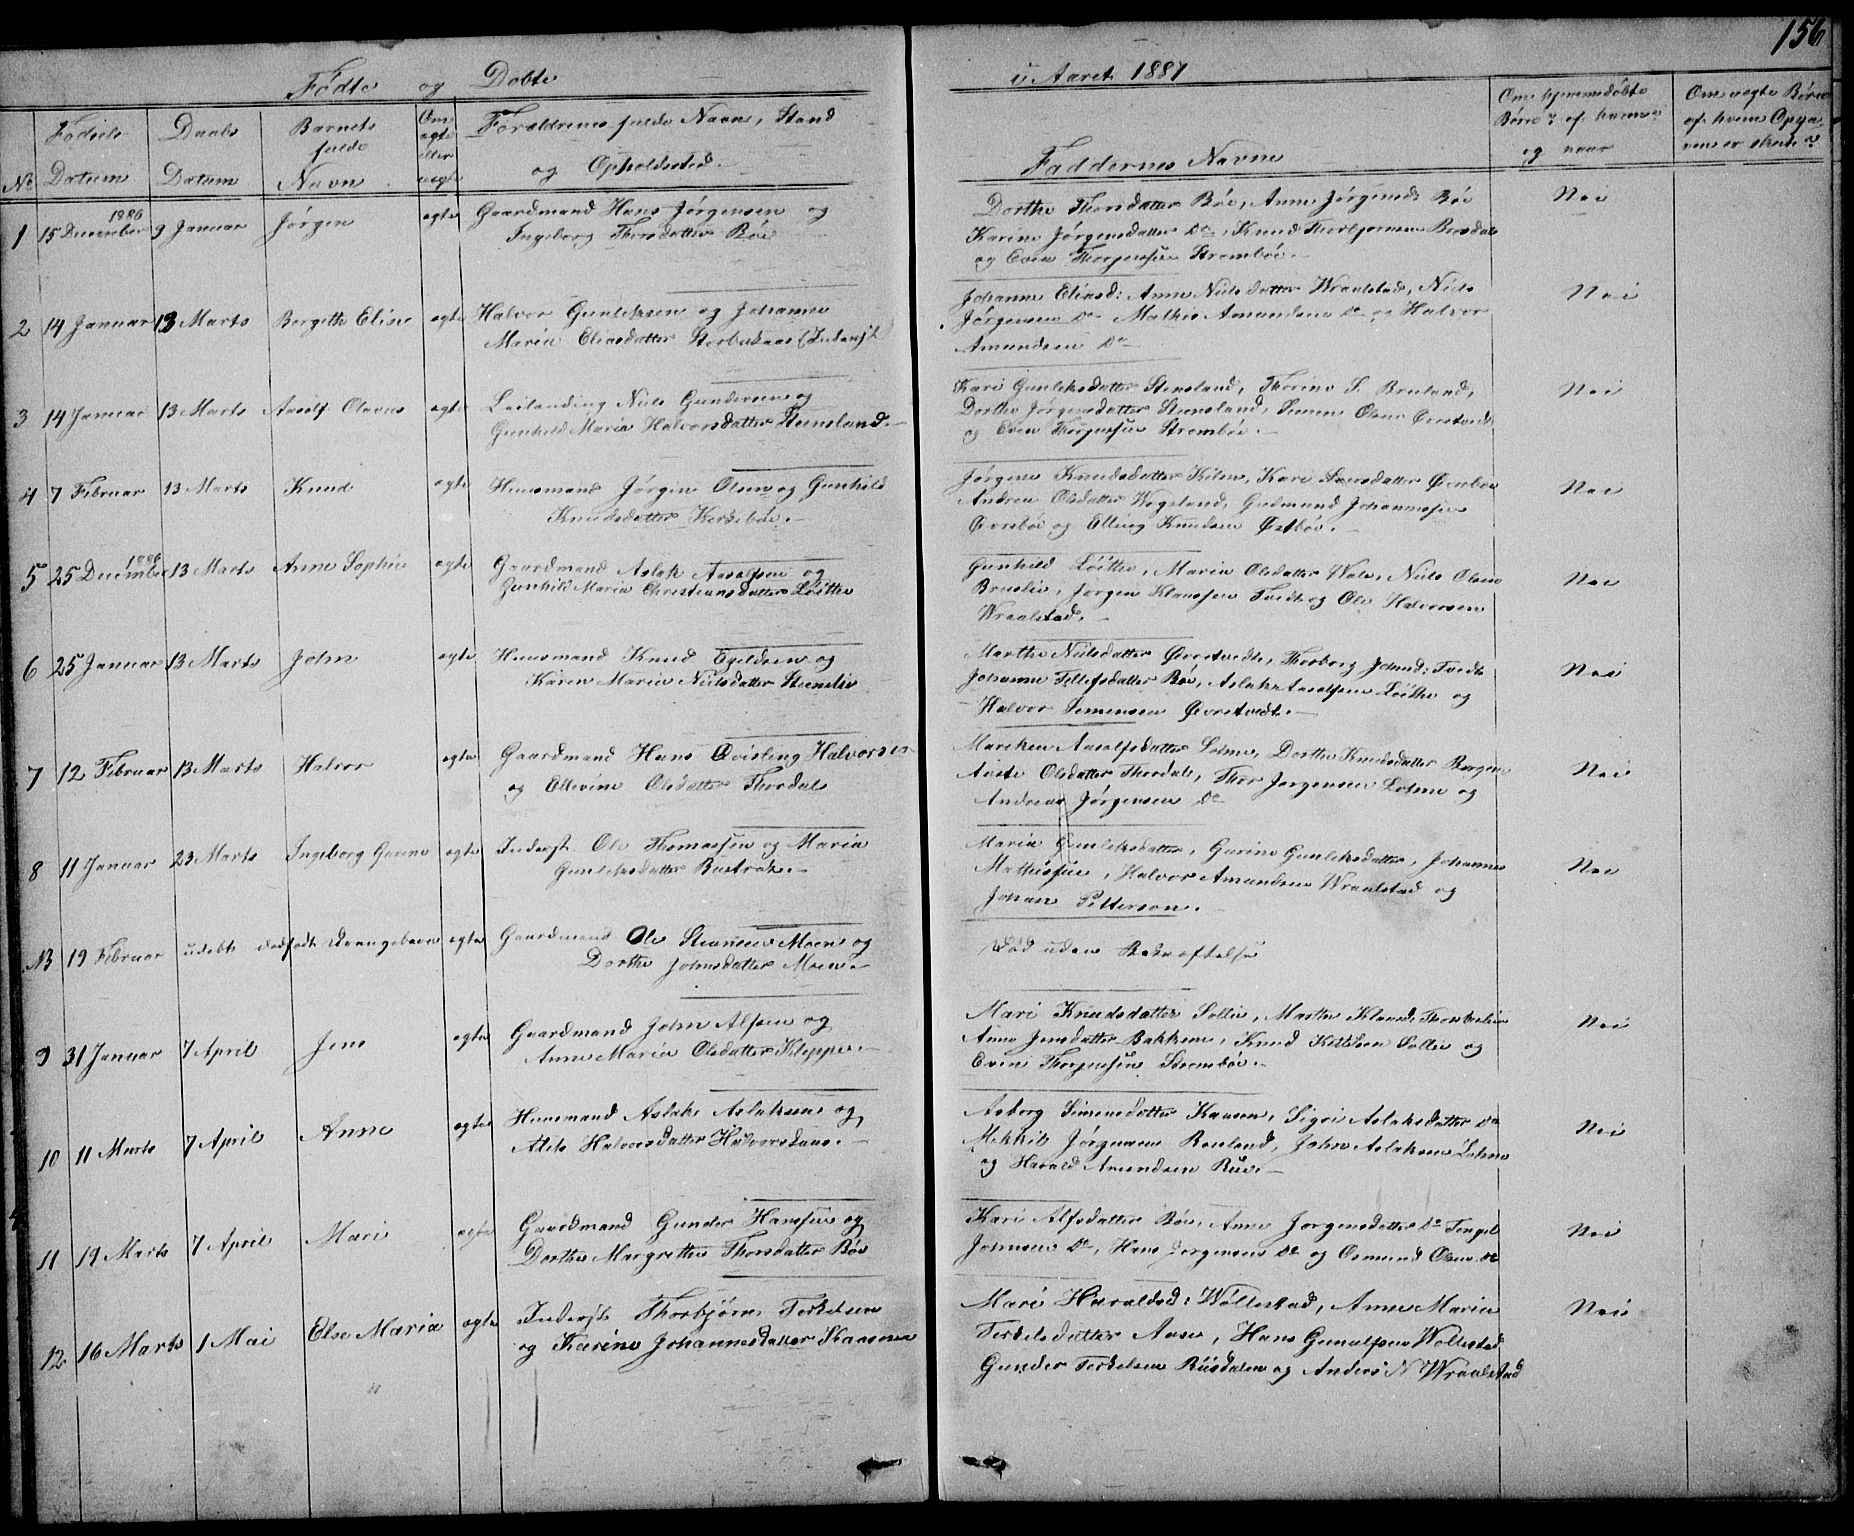 156
Fødte og Døbte
i Aaret 1887
No
Fødsels Datum
Daabs Datum
Barnets fulde Navn
Om ægte eller uægte
Forældrenes fulde Navne, Stand og Opholdssted.
Faddernes Navne
Om hjemmedøbte Børn af hvem og naar
Om uægte Børn
1 15 December 1886 9 Januar Jørgen ægte Gaardmand Hans Jørgensen og
Ingeborg Thorsdatter Bøe
Dorthe Thorsdatter Bøe, Anne Jørgensd: Bøe
Karine Jørgensdatter Do, Knud Thorbjørnsen
og Even Thorgersen Strømbøe.
Nei
2 14 Januar 13 Marts Bergithe Elise ægte Halvor Gunleksen og Johanne
Maria Eliasdatter
Johanne Eliasd: Anne Nielsdatter Wraalstad, Niels
Jørgensen Do Mathis Amundsen Do og Halvor
Amundsen Do
Nei
3 14 Januar 13 Marts Aasolf Olavus ægte Leilænding Niels Gundersen og
Gunhild Maria Halvorsdatter Steensland.
Kari Gunleksdatter Stensland, Thorine S.
Dorthe Jørgensdatter Steensland, Simen Olsen Øvretvedt
og Even Thorgersen Strømbøe.
Nei
4 7 Februar 13 Marts Knud ægte Huusmand Jørgen Olsen og Gunhild
Knudsdatter
Jørgine Knudsdatter Kilen, Kari
Andrea Olsdatter Wegsland, Gudmund Johannessen
og Elling Knudsen Østbøe.
Nei
5 25 December 1886 13 Marts Anne Sophie ægte Gaardmand Aslak Aasolfsen og
Gunhild Maria Christiansdatter Løithe
Gunhild Løithe, Maria Olsdatter Wale, Niels Olsen
Jørgen Klausen Tvedt og Ole Halvorsen
Wraalstad.
Nei
6 25 Januar 13 Marts John ægte Huusmand Knud Egeldsen og
Karen Maria Nielsdatter Steenslie
Marthe Nielsdatter Øvretvedt, Thorborg Johnsd: Tvedt
Johanne Tellefsdatter Bøe, Aslak Aasolfsen Løithe og
Halvor Simensen Øvretvedt.
Nei
7 12 Februar 13 Marts Halvor ægte Gaardmand Hans Qvisling Halvorsen
og Ellevine Olsdatter Thordal
Mareken Aasolfsdatter Lohne, Dorthe Knudsdatter Bergene
Aaste Olsdatter Thordal, Thor Jørgensen Lohne og
Andreas Jørgensen Do
Nei
8 11 Januar 23 Marts Ingeborg Gurine ægte Inderst Ole Thomassen og Maria
Gunleksdatter Bustrak.
Maria Gunleksdatter, Gurine Gunleksdatter, Johannes
Mathissen, Halvor Amundsen Wraalstad og
Johan Petterson.
Nei
NB 19 Februar udøbt dødfødt Drengebarn ægte Gaardmand Ole Steansen Moen og
Dorthe Johnsdatter Moen.
Død uden Bekræftelse
9 31 Januar 7 April Jens ægte Gaardmand John Alfsen og
Anne Maria Olsdatter Kleppe.
Mari Knudsdatter Sollie, Marthe Klausd:
Anne Jensdatter Bakken, Knud Kittilsen Sollie og
Even Thorgersen Strømbøe.
Nei
10 11 Marts 7 April Anne ægte Huusmand Aslak Aslaksen og
Alet Halvorsdatter Halvorskaas.
Asborg Simensdatter Kaasen, Sigri Aslaksdatter Do
Mikkil Jørgensen Roeland, John Aslaksen Lohne
og Harald Amundsen Rue.
Nei
11 19 Marts 7 April Mari ægte Gaardmand Gunder Hanssen og
Dorthe Margrethe Thorsdatter Bøe
Kari Alfsdatter Bøe, Anne Jørgensdatter Do Tengel
Johnsen Do, Hans Jørgensen Do og Osmund Olsen Do
Nei
12 16 Marts 1 Mai Else Maria ægte Inderst Thorbjørn Terkelsen
og Karine Johannesdatter
Mari Haraldsd: Wollestad, Anne Maria
Terkelsdatter Aase, Hans Gunulfsen Wollestad
Gunder Terkelsen Riisdalen og Anders N Wraalstad
Nei